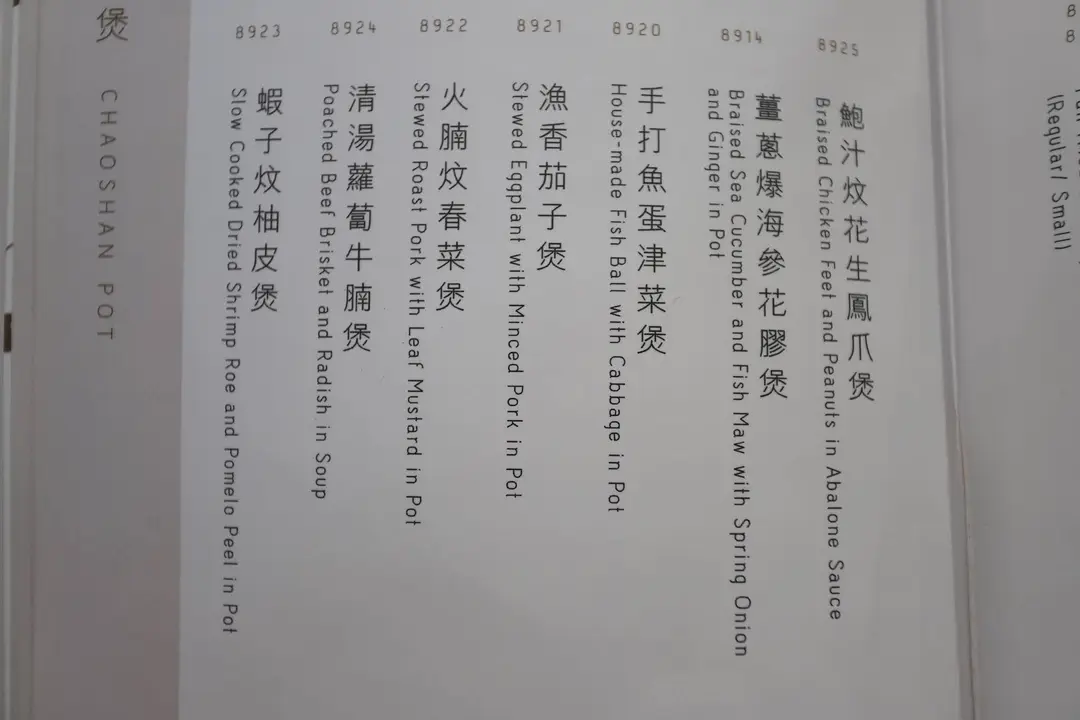 煲 CHAOSHAN POT
(Regular/ Small)
8925
鮑汁炆花生鳳爪煲
Braised Chicken Feet and Peanuts in Abalone Sauce
8914
薑蔥爆海參花膠煲
Braised Sea Cucumber and Fish Maw with Spring Onion
and Ginger in Pot
8920
手打魚蛋津菜煲
House-made Fish Ball with Cabbage in Pot
8921
漁香茄子煲
Stewed Eggplant with Minced Pork in Pot
8922
火腩炆春菜煲
Stewed Roast Pork with Leaf Mustard in Pot
8924
清湯蘿蔔牛腩煲
Poached Beef Brisket and Radish in Soup
8923
蝦子炆柚皮煲
Slow Cooked Dried Shrimp Roe and Pomelo Peel in Pot